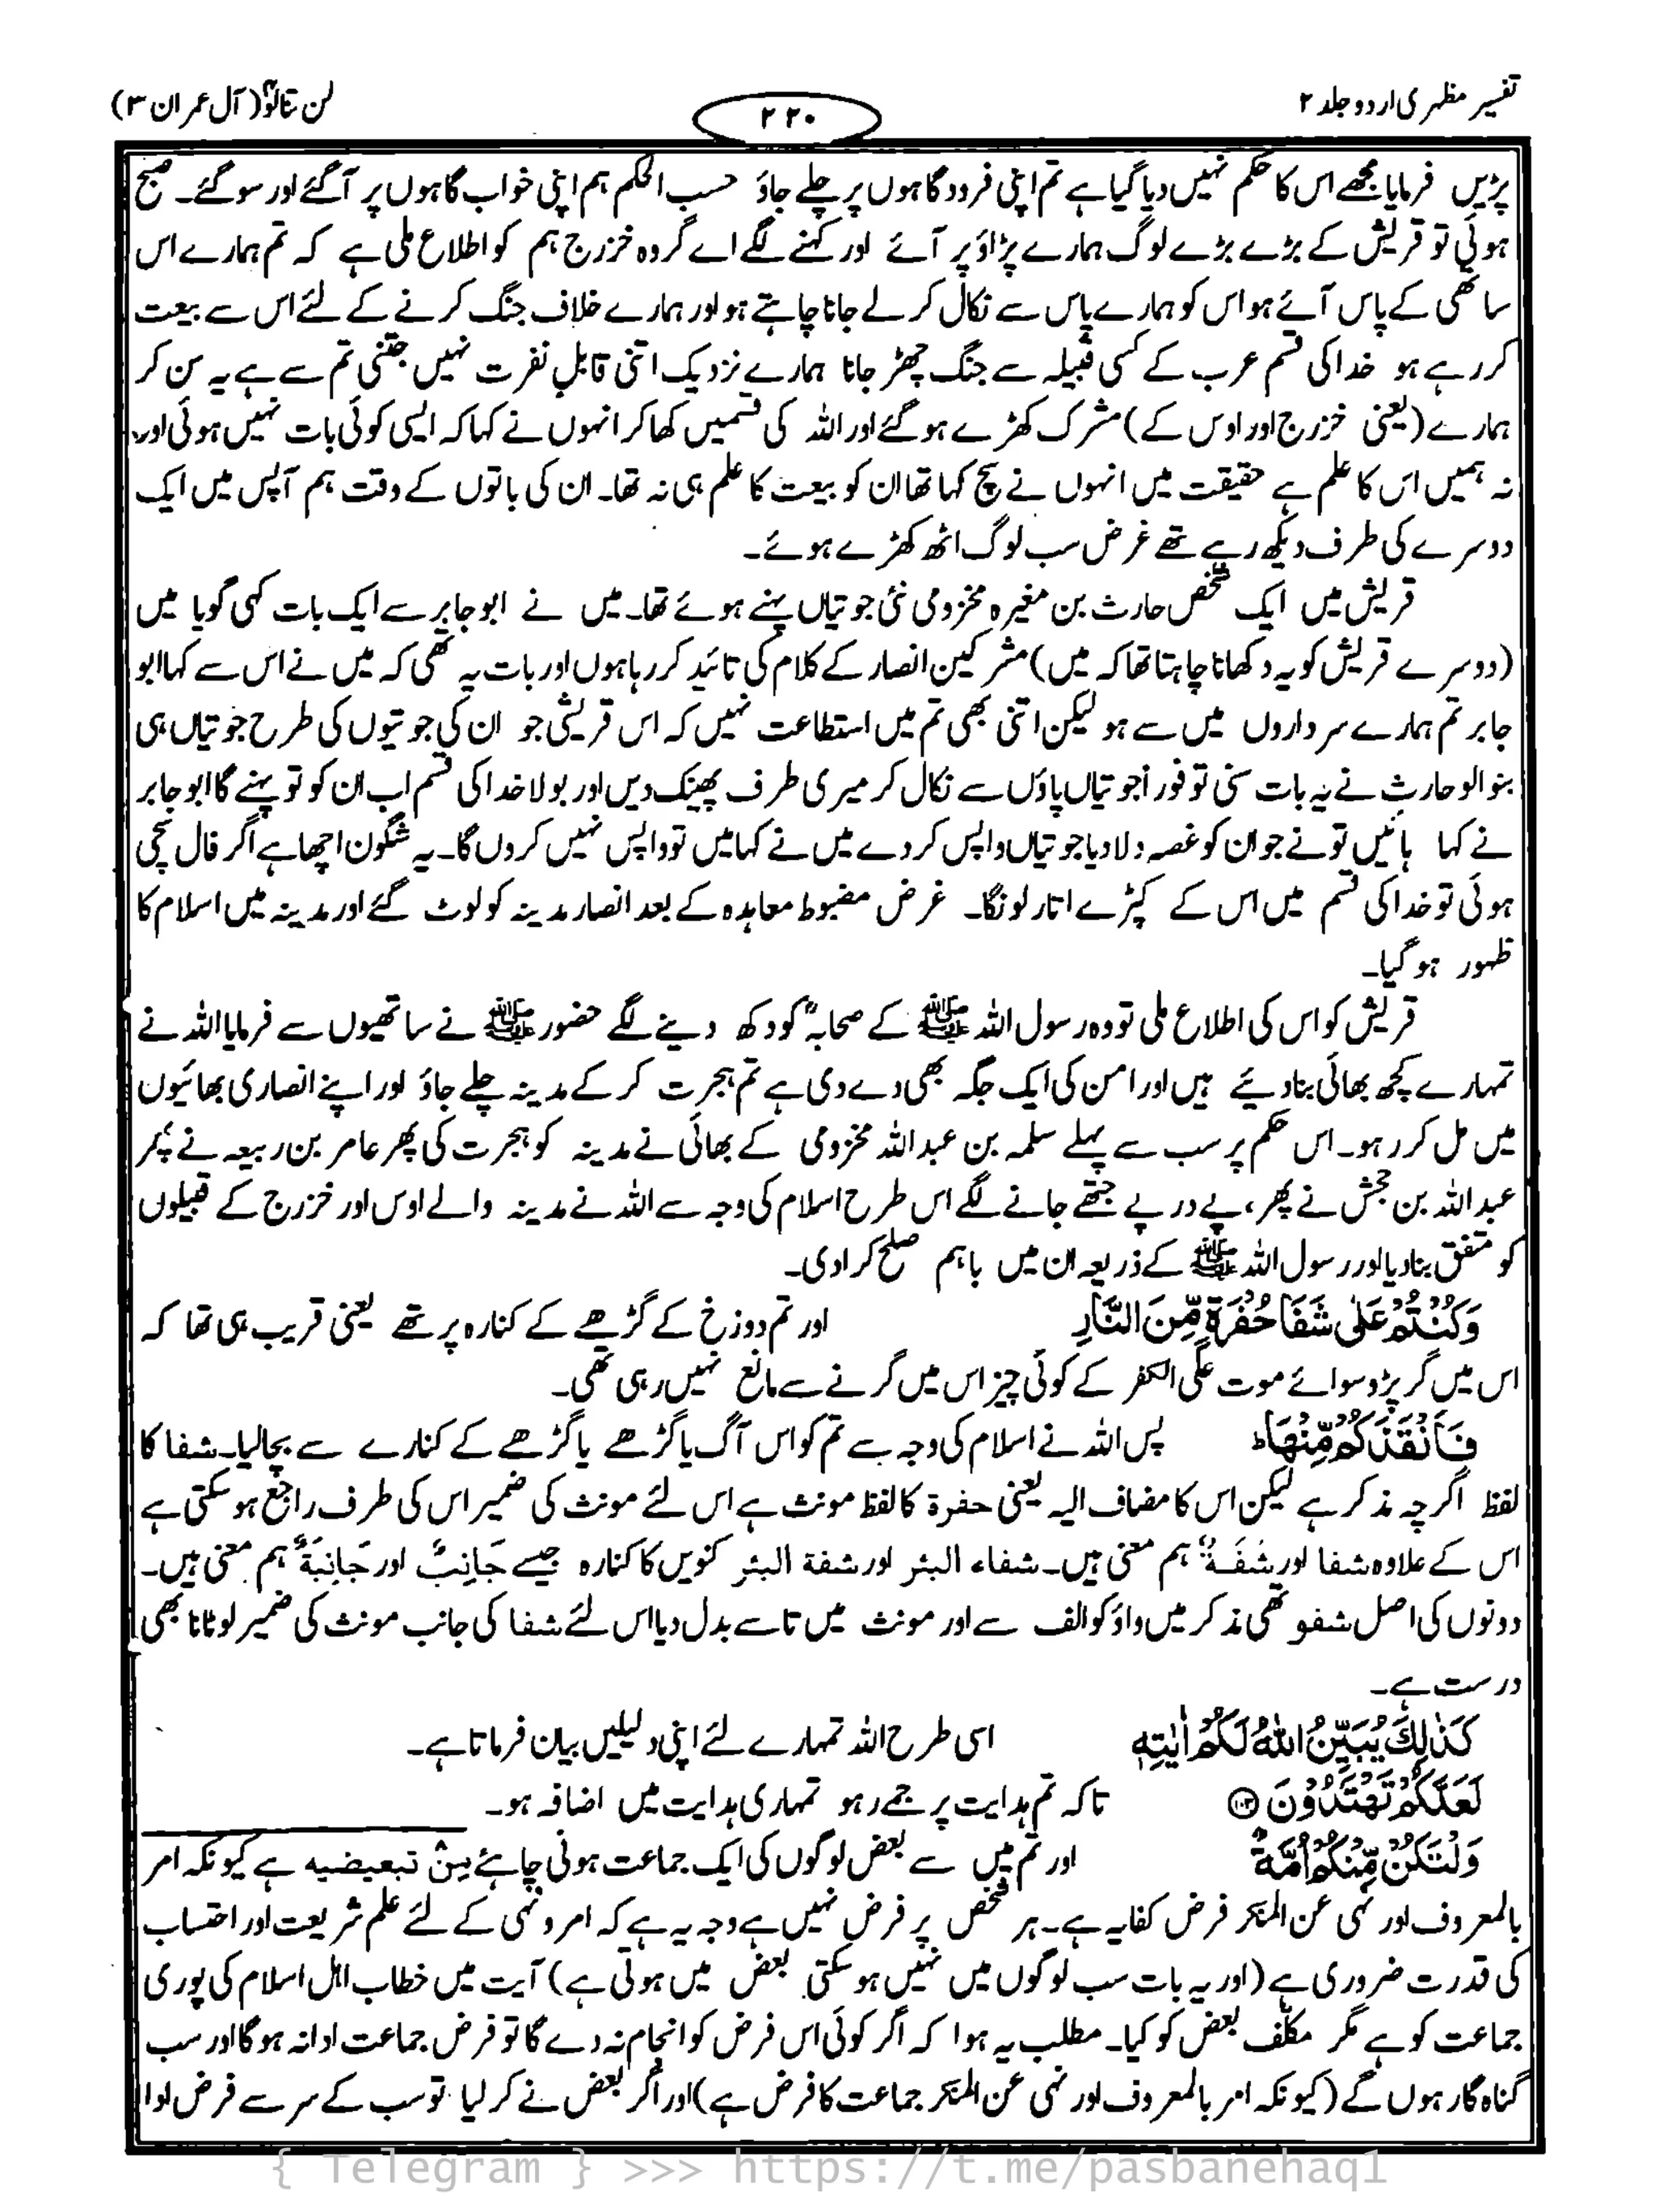 تفسیر مظہری اردو جلد ۲
۲۲۰
لن تنالوا (آل عمران ۳)
پڑیں فرمایا مجھے اس کا حکم نہیں دیا گیا ہے تم اپنی فرودگاہوں پر چلے جاؤ حسب الحکم ہم اپنی خواب گاہوں پر آگئے اور سوگئے۔ صبح
ہوئی تو قریش کے بڑے بڑے لوگ ہمارے پڑاؤ پر آئے اور کہنے لگے اے گروہ خزرج ہم کو اطلاع ملی ہے کہ تم ہمارے اس
ساتھی کے پاس آئے ہو اس کو ہمارے پاس سے نکال کر لے جانا چاہتے ہو اور ہمارے خلاف جنگ کرنے کے لئے اس سے بیعت
کر رہے ہو خدا کی قسم عرب کے کسی قبیلہ سے جنگ چھڑ جانا ہمارے نزدیک اتنی قابلِ نفرت نہیں جتنی تم سے ہے یہ سن کر
ہمارے (یعنی خزرج اور اوس کے) مشرک کھڑے ہوگئے اور اللہ کی قسمیں کھا کر انہوں نے کہا کہ ایسی کوئی بات نہیں ہوئی اور
نہ ہمیں اس کا علم ہے حقیقت میں انہوں نے سچ کہا تھا ان کو بیعت کا علم ہی نہ تھا۔ ان کی باتوں کے وقت ہم آپس میں ایک
دوسرے کی طرف دیکھ رہے تھے غرض سب لوگ اٹھ کھڑے ہوئے۔
قریش میں ایک شخص حارث بن مغیرہ مخزومی نئی جوتیاں پہنے ہوئے تھا۔ میں نے ابو جابر سے ایک بات کہی گویا میں
(دوسرے قریش کو یہ دکھانا چاہتا تھا کہ میں) مشرکین انصار کے کلام کی تائید کر رہا ہوں اور بات یہ تھی کہ میں نے اس سے کہا ابو
جابر تم ہمارے سرداروں میں سے ہو لیکن اتنی بھی تم میں استطاعت نہیں کہ اس قریشی جو ان کی جوتیوں کی طرح جوتیاں ہی
بنوالو حارث نے یہ بات سنی تو فوراً جوتیاں پاؤں سے نکال کر میری طرف پھینک دیں اور بولا خدا کی قسم اب ان کو تو پہنے گا ابو جابر
نے کہا ہائیں تو نے جوان کو غصہ دلا دیا جوتیاں واپس کر دے میں نے کہا میں تو واپس نہیں کروں گا۔ یہ شگون اچھا ہے اگر فال سچی
ہوئی تو خدا کی قسم میں اس کے کپڑے اتار لونگا۔ غرض مضبوط معاہدہ کے بعد انصار مدینہ کو لوٹ گئے اور مدینہ میں اسلام کا
ظہور ہوگیا۔
قریش کو اس کی اطلاع ملی تو وہ رسول اللہ ﷺ کے صحابہؓ کو دکھ دینے لگے حضور ﷺ نے ساتھیوں سے فرمایا اللہ نے
تمہارے کچھ بھائی بنادیئے ہیں اور امن کی ایک جگہ بھی دے دی ہے تم ہجرت کر کے مدینہ چلے جاؤ اور اپنے انصاری بھائیوں
میں مل کر رہو۔ اس حکم پر سب سے پہلے سلمہ بن عبداللہ مخزومی کے بھائی نے مدینہ کو ہجرت کی پھر عامر بن ربیعہ نے پھر
عبداللہ بن جحش نے پھر، پے در پے جتھے جانے لگے اس طرح اسلام کی وجہ سے اللہ نے مدینہ والے اوس اور خزرج کے قبیلوں
کو متفق بنادیا اور رسول اللہ ﷺ کے ذریعہ ان میں باہم صلح کرادی۔
وَكُنْتُمْ عَلٰى شَفَا حُفْرَةٍ مِّنَ النَّارِ اور تم دوزخ کے گڑھے کے کنارہ پر تھے یعنی قریب ہی تھا کہ
اس میں گر پڑو سوائے موت علی الکفر کے کوئی چیز اس میں گرنے سے مانع نہیں رہی تھی۔
فَاَنْقَذَكُمْ مِّنْهَا ؕ پس اللہ نے اسلام کی وجہ سے تم کو اس آگ یا گڑھے یا گڑھے کے کنارے سے بچالیا۔ شفا کا
لفظ اگرچہ مذکر ہے لیکن اس کا مضاف الیہ یعنی حفرة کا لفظ مونث ہے اس لئے مونث کی ضمیر اس کی طرف راجع ہوسکتی ہے
اس کے علاوہ شفا اور شَفَةٌ ہم معنی ہیں۔ شفاء البئر اور شفة البئر کنویں کا کنارہ جیسے جَانِبٌ اور جَانِبَةٌ ہم معنی ہیں۔
دونوں کی اصل شفو تھی مذکر میں واؤ کو الف سے اور مونث میں تا سے بدل دیا اس لئے شفا کی جانب مونث کی ضمیر لوٹانا بھی
درست ہے۔
كَذٰلِكَ يُبَيِّنُ اللّٰهُ لَكُمْ اٰيٰتِهٖ اسی طرح اللہ تمہارے لئے اپنی دلیلیں بیان فرماتا ہے۔
لَعَلَّكُمْ تَهْتَدُوْنَ ۝۱۰۳ تاکہ تم ہدایت پر جمے رہو تمہاری ہدایت میں اضافہ ہو۔
وَلْتَكُنْ مِّنْكُمْ اُمَّةٌ اور تم میں سے بعض لوگوں کی ایک جماعت ہونی چاہئے مِنْ تبعیضیه ہے کیونکہ امر
بالمعروف اور نہی عن المنکر فرض کفایہ ہے۔ ہر شخص پر فرض نہیں ہے وجہ یہ ہے کہ امر و نہی کے لئے علم شریعت اور احتساب
کی قدرت ضروری ہے (اور یہ بات سب لوگوں میں نہیں ہوسکتی بعض میں ہوتی ہے) آیت میں خطاب اہل اسلام کی پوری
جماعت کو ہے مگر مکلّف بعض کو کیا۔ مطلب یہ ہوا کہ اگر کوئی اس فرض کو انجام نہ دے گا تو فرض جماعت ادا نہ ہوگا اور سب
گناہ گار ہوں گے (کیونکہ امر بالمعروف اور نہی عن المنکر جماعت کا فرض ہے) اور اگر بعض نے کر لیا تو سب کے سر سے فرض ادا
{ Telegram } >>> https://t.me/pasbanehaq1